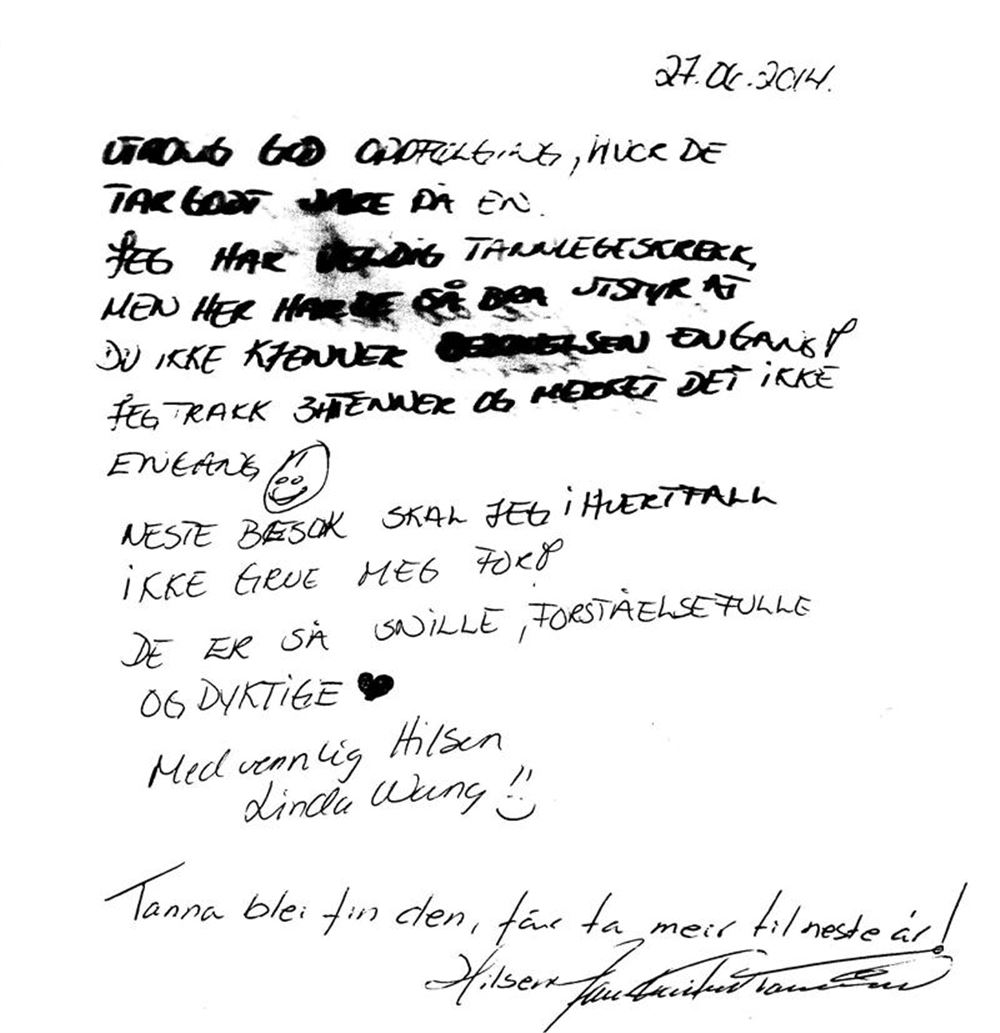 27.06.2014.
UTROLIG GOD OPPFØLGING, HVOR DE
TAR GODT VARE PÅ EN.
JEG HAR VELDIG TANNLEGESKREKK,
MEN HER HAR DE SÅ BRA UTSTYR AT
DU IKKE KJENNER BEDØVELSEN ENGANG!
JEG TRAKK 3 TENNER OG MERKET DET IKKE
ENGANG
NESTE BESØK SKAL JEG IHVERTFALL
IKKE GRUE MEG FOR!
DE ER SÅ SNILLE, FORSTÅELSEFULLE
OG DYKTIGE
Med vennlig Hilsen
Linda Wang!!
Tanna blei fin den, får ta meir til neste år!
Hilsen